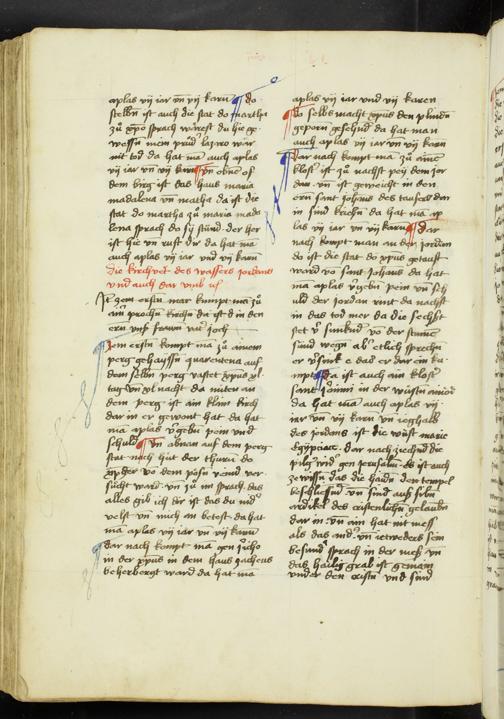 aplas vij iar vn vij karen do
selben ist auch die stat do martha
zu xpo sprach wärest du hie ge
wesen mein pruder lazero wär
nit tod da hat man auch aplas
vij iar vn vij karen vn obne of
dem berg ist das haus maria
madalena vn martha da ist die
stat do martha zu maria mada
lena sprach do sy stund der her
ist hie vn ruft dir da hat man
auch aplas vij iar vnd vij karen
die kirchvert des wassers jordanis
vnd auch dar vmb
It zem ersten mar kumpt ma zu
ain prochen kirchen da ist in den
ern vnser frawen vn joch
Item ersten kompt ma zu ainem
perg gehayssen quarentena auf
dem selben perg vastet xpus xl
tag vn xl nacht da miten an
dem perg ist ain klain kirch
dar in er gewont hat da hat
ma aplas vergebn pein vnd
schuld vn obnan auf dem perg
stat noch hut der thuren do
xpus vo dem pösen veind ver
sucht ward vn zu im sprach das
alles gib ich dir ist das du nider
velst vn mich an betest da hat
ma aplas vij iar vn vij karen
dar nach kompt ma gen jericho
in der xpus in dem haus zacheus
beherbergt ward da hat ma
aplas vij iar vnd vij karen
do selbs macht xpus den plinden
geporn gesehend da hat man
auch aplas vij iar vn vij karen
dar nach kompt ma zu ainem
kloster ist zu nachst pey dem jor
dan vn ist geweicht in den
ern sant johans des taufers dar
in sind krichen da hat ma ap
las vij iar vn vij karen dar
nach kompt man an den jordan
do ist die stat do xpus getauft
ward vo sant johans da hat
ma aplas vergebn pein vn sch
uld der jordan rint da nachst
in das tod mer da die sechst
stet versunkend vo der stumen
sund wegen
sant in der wüsten
da hat ma auch aplas vij
iar vn vij karen vn ienhalb
des jordans ist die wüst marie
Egypciace dar nach ziechend die
pilgrim gen Jerusalem Es ist auch
ze wissen das die haiden den tempel
beschliessend vn sind auf sibn
artikel des cristenlichen gelauben
dar in vn ain hat mit mess
als das ander vn
besunder sprach in der mess vn
das hailig grab ist gemain
vnder den cristen vnd sind